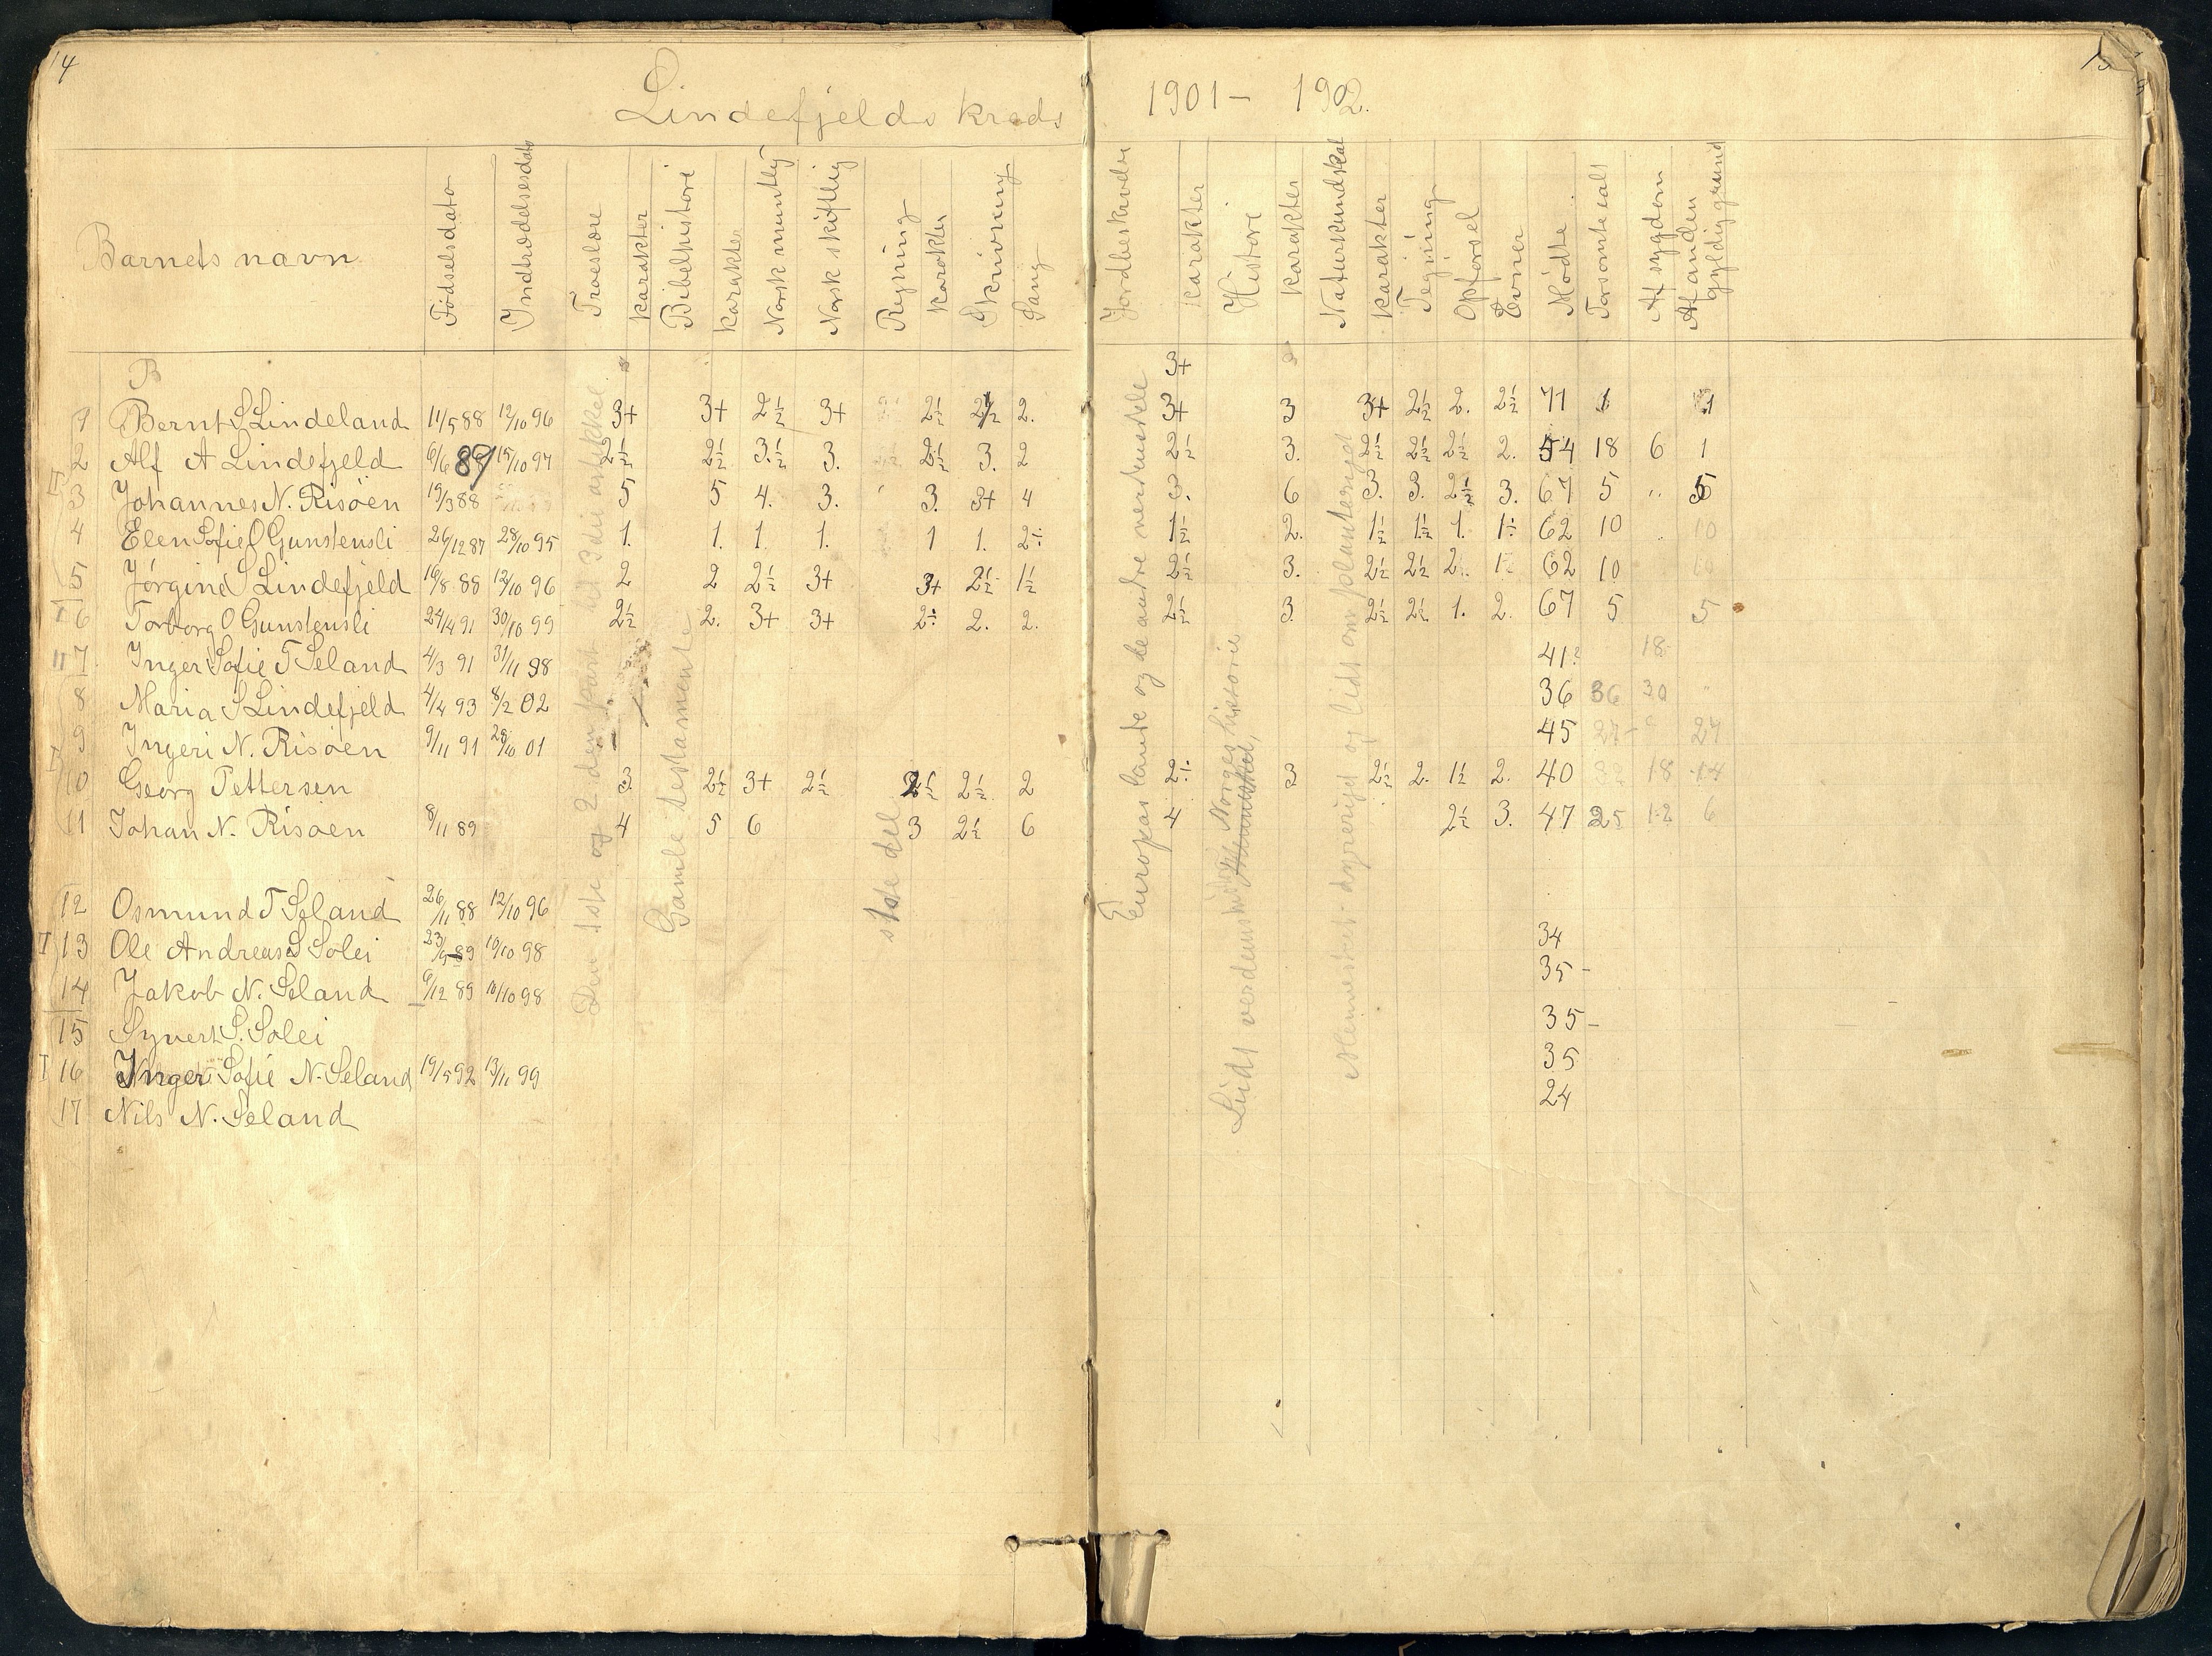 14
Lindefjelds kreds
1901 – 1902.
Barnets navn
Fødselsdato
Indtrædelsesdato
Troeslære
karakter
Bibelhistori
karakter
Norsk mundtlig
Norsk skriftlig
Regning
karakter
Skrivning
Sang
Jordbeskrivelse
karakter
Histori
karakter
Naturkundskab
karakter
Tegning
Opførsel
Evner
Mødte
Forsømte ialt
Af sygdom
Af anden gyldig grund
B
3+
1 Bernt S Lindeland 11/5 88 12/10 96 3+ 3+ 2½ 3+ 2½ 2½ 2. 3+ 3 3+ 2½ 2. 2½ 71 1 1
2 Alf A Lindefjeld 6/6 89 15/10 97 2½ 2½ 3½ 3. 2½ 3. 2 2½ 3. 2½ 2½ 2½ 2. 54 18 6 1
3 Johannes N. Risöen 19/3 88 5 5 4. 3. 3. 3+ 4 3. 6 3. 3. 2½ 3. 67 5 " 5
4 Elen Sofie O Gunstensli 26/12 87 28/10 95 1. 1. 1. 1. 1 1. 2½ 1½ 2. 1½ 1½ 1. 1½ 62 10 10
5 Jørgine S Lindefjeld 16/8 88 12/10 96 2 2 2½ 3+ 3+ 2½ 1½ 2½ 3. 2½ 2½ 2. 62 10 10
6 Torborg O Gunstensli 24/4 91 30/10 99 2½ 2. 3+ 3+ 2½ 2. 2. 2½ 3. 2½ 2½ 1. 2. 67 5 5
II 7 Inger Sofie T Seland 4/3 91 31/11 98 41? 18
8 Maria S Lindefjeld 4/4 93 8/2 02 36 36 30 "
9 Ingeri N. Risöen 9/11 91 28/10 01 45 27 27
10 Georg Pettersen 3. 2½ 3+ 2½ 2½ 2½ 2 2½ 3 2½ 2. 1½ 2. 40 32 18 14
11 Johan N. Risøen 8/11 89 4 5 6 3 2½ 6 4 2½ 3. 47 25 12 6
12 Osmund T Seland 26/11 88 12/10 96
I 13 Ole Andreas S Solei 23/9 89 10/10 98 34
14 Jakob N. Seland 6/12 89 10/10 98 35 –
15 Syvert S. Solei 35 –
I 16 Inger Sofie N. Seland 19/5 92 13/11 99 35
17 Nils N. Seland 24
Den 1ste og 2den part til 3die artikkel
Gamle testamente
1ste del
Europas lande og de andre verdensdele
Lidt verdenshistorie, Norges historie
Mennesket dyreriget og lidt om planteriget